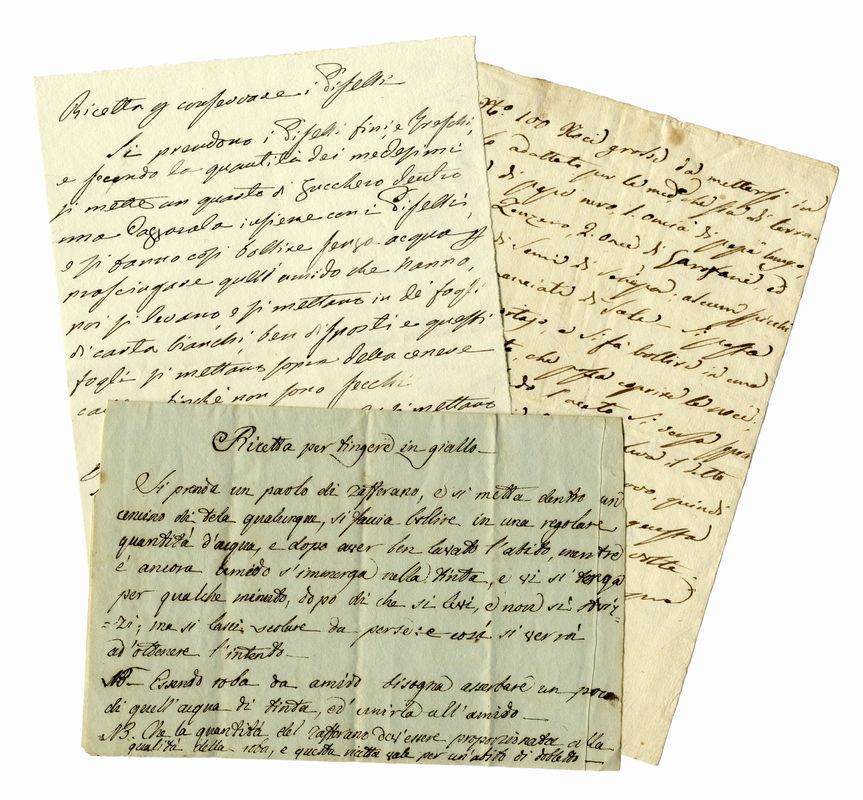 Ricetta p conservare i Piselli
Si prendono i Piselli fini, e freschi,
e secondo la quantità dei medesimi
si mette un quarto di Zucchero dentro
una Cazzarola insieme con i Piselli,
e si fanno così bollire senza acqua p
prosciugare quell'umido che hanno,
poi si levano e si mettano in de' fogli
di carta bianchi ben disposti e questi
fogli si mettano sopra della cenere
finchè non sono secchi
si mettano
No 100 Noci grosse da mettersi in
adattato per le med che sia di terra
di pepe nero, 1. oncia di pepe lungo
Zenzero, 2. once di Garofani ed
di Semi di Senapa: alcuni spicchi
di Sale. Si possa
e si fa bollire in una
che possa coprire le noci:
Aceto si versa
il tutto
quindi
questa
volte
Ricetta per tingere in giallo
Si prenda un paolo di zafferano, e si metta dentro un
cencino di tela qualunque, si faccia bollire in una regolare
quantità d'acqua, e dopo aver ben lavato l'abito, mentre
è ancora umido s'immerga nella tinta, e vi si tenga
per qualche minuto, dopo di che si levi, e non si striz-
=zi; ma si lasci scolare da perse: e così si verrà
ad'ottenere l'intento
NB Essendo roba da amido bisogna aserbare un poca
di quell'acqua di tinta, ed'unirla all'amido
NB. Che la quantità del zafferano dev'essere proporzionata alla
qualità della roba, e questa ricetta vale per un'abito di dobletto